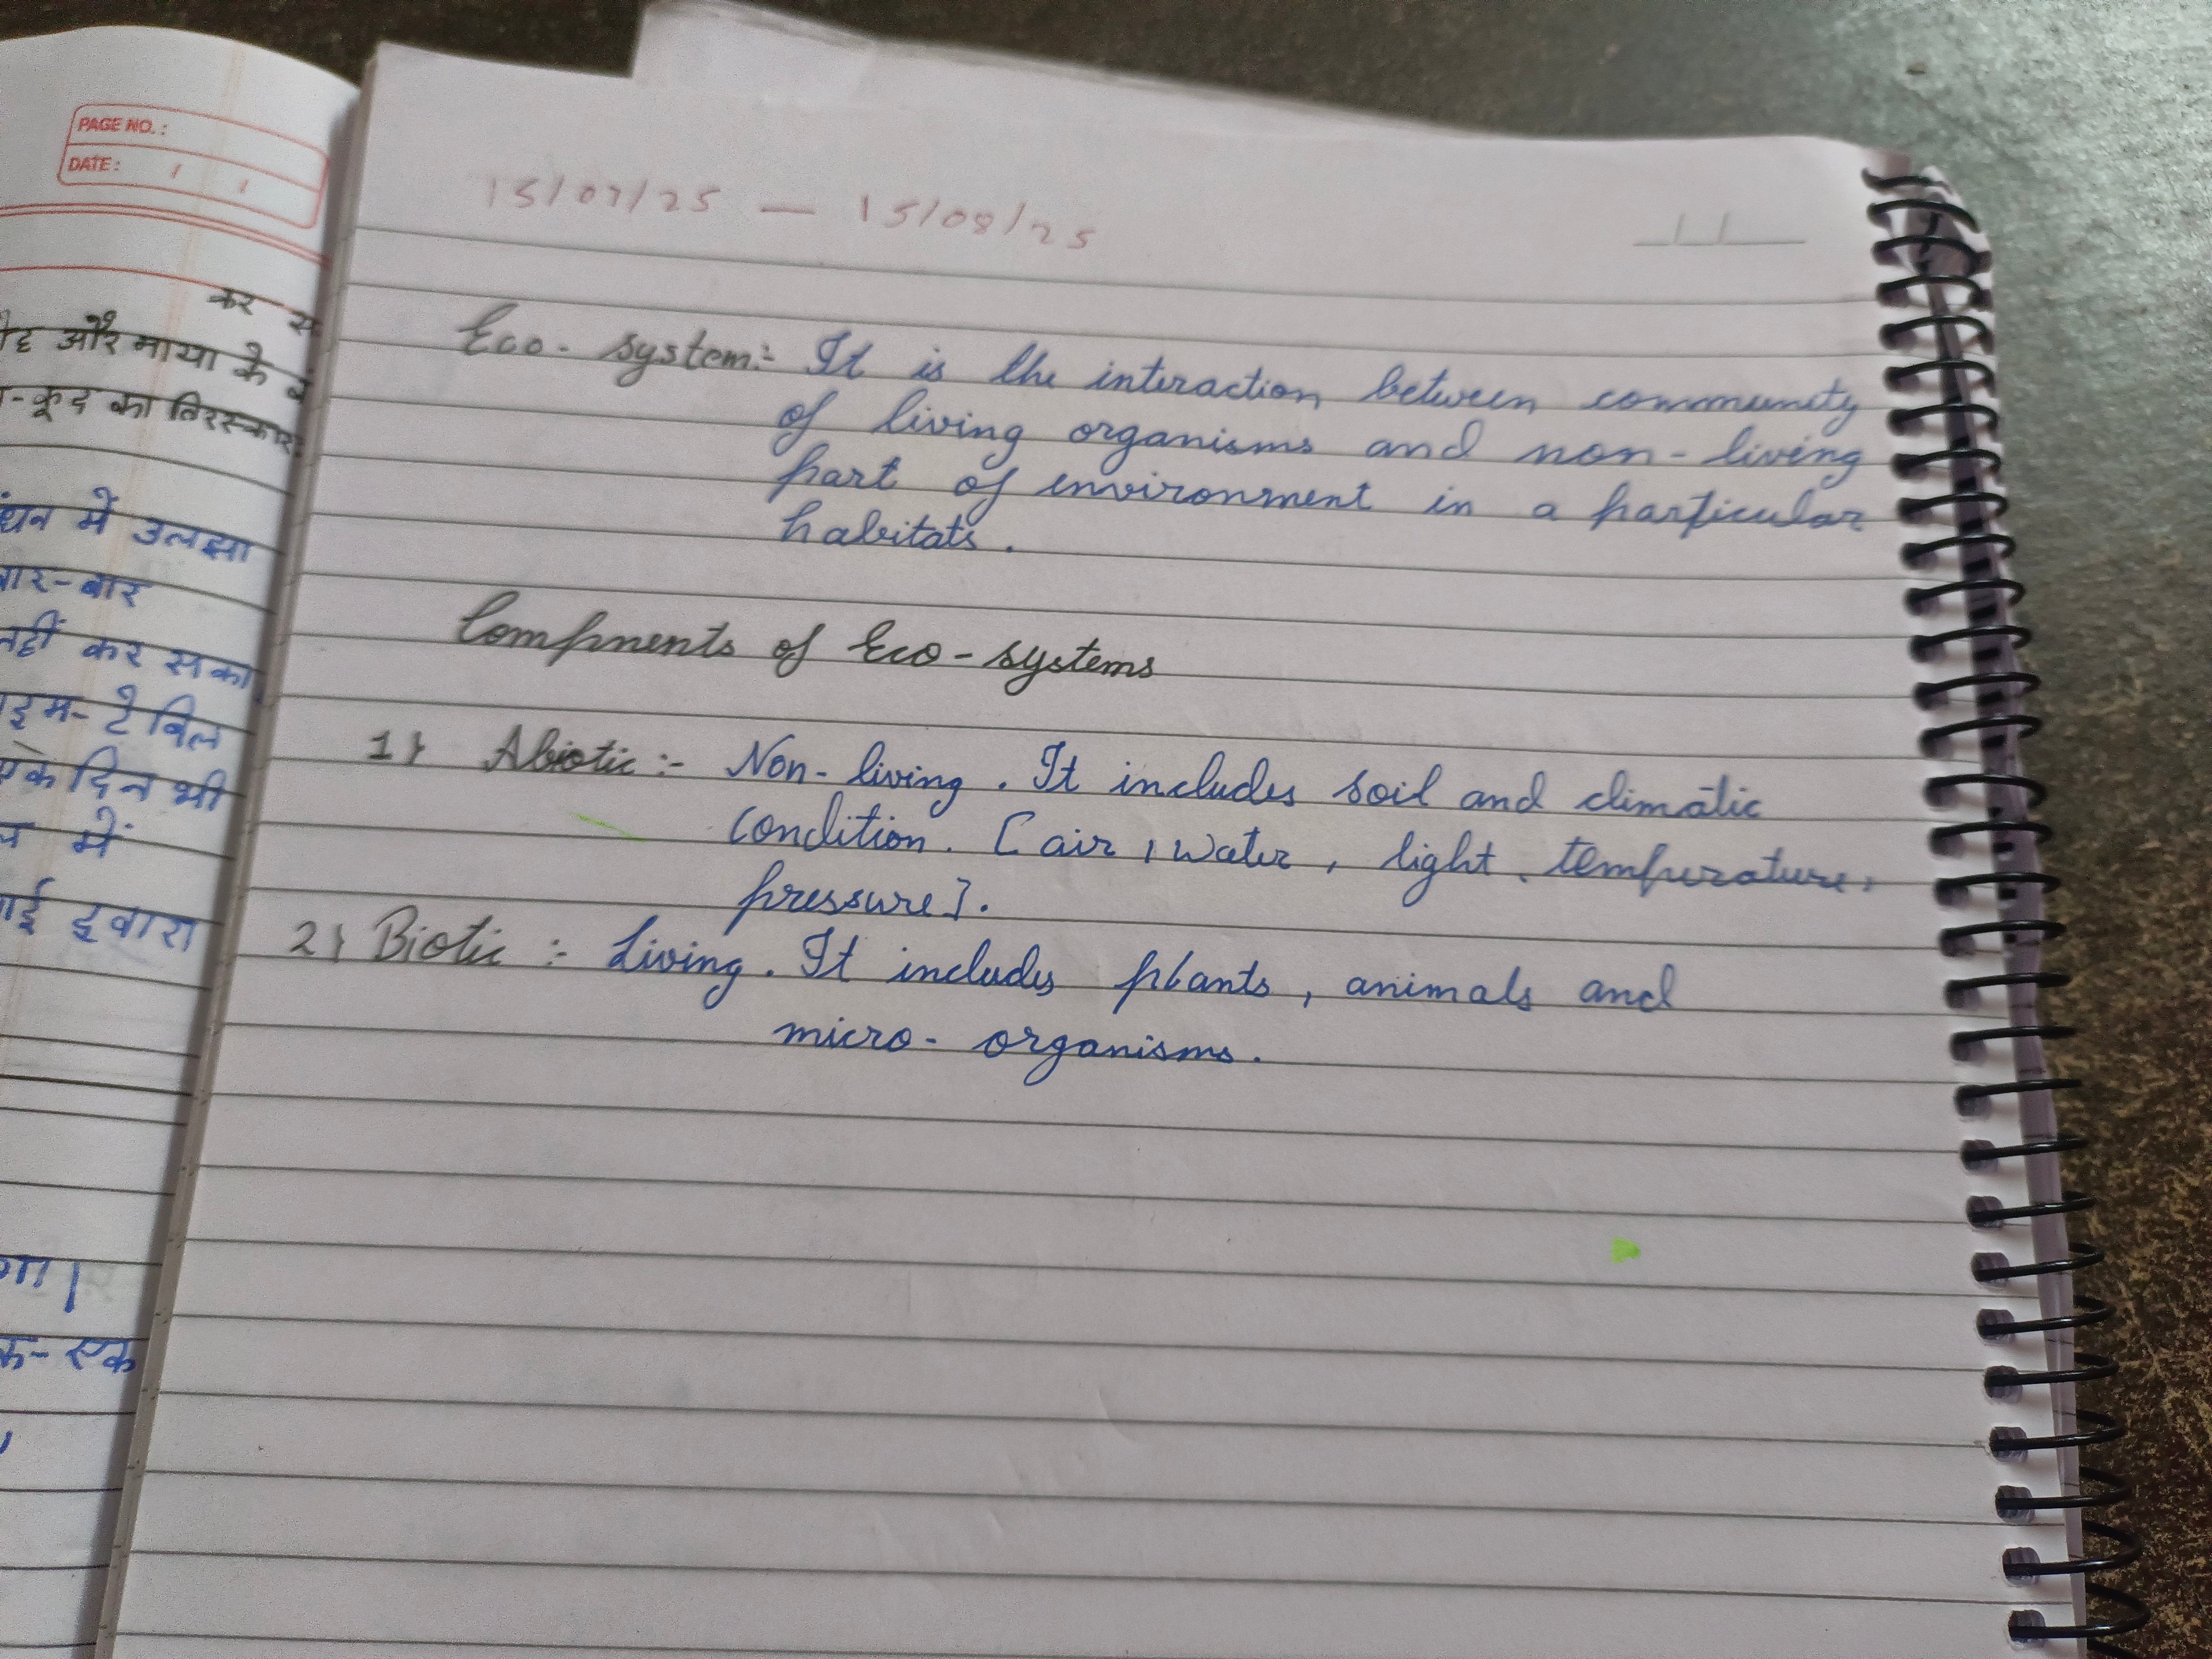 PAGE NO. :
DATE :
कर
और माया के
-कूद का तिरस्कार
में उलझा
बार-बार
नहीं कर सका
टेबिल
एक दिन भी
में
द्वारा
एक
15/07/25 — 15/08/25
Eco- system:- It is the interaction between community
of living organisms and non-living
part of environment in a particular
habitats.
Compnents of Eco-systems
1} Abiotic :- Non-living. It includes soil and climatic
condition. [air, water, light, temperature,
pressure].
2} Biotic :- Living. It includes plants, animals and
micro-organisms.